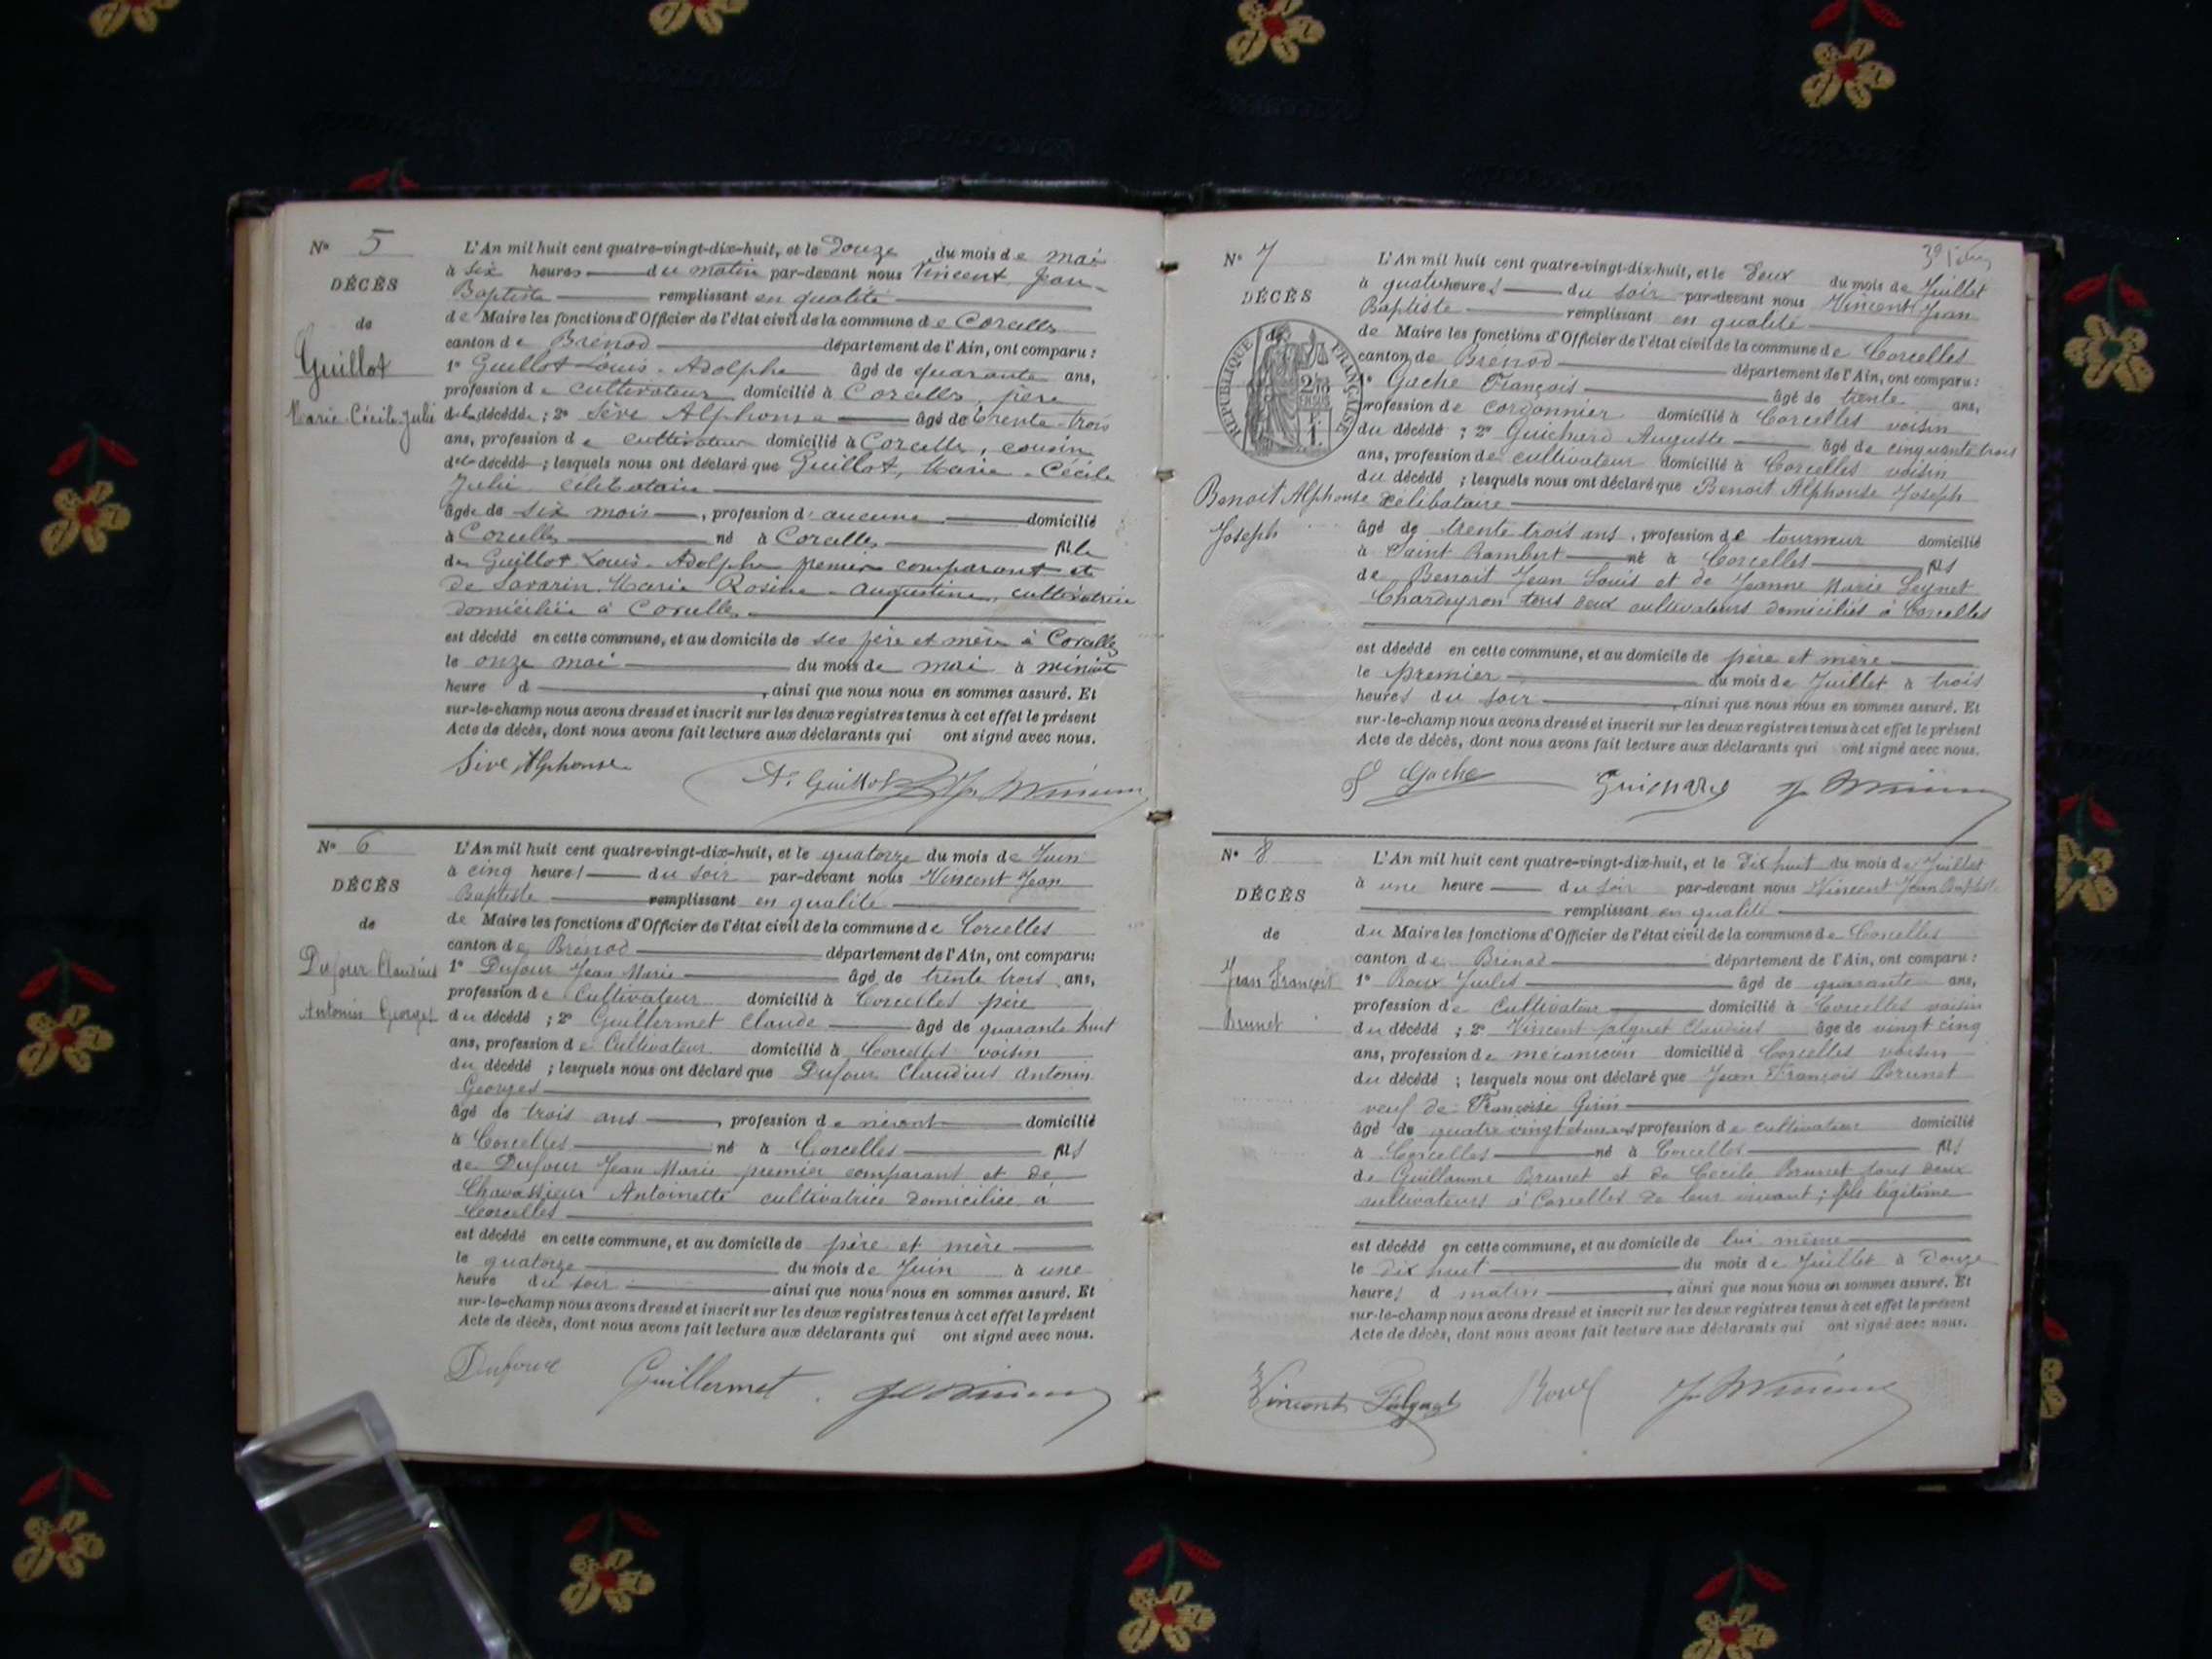 N° 5
DÉCÈS
de
Guillot
Marie-Cécile-Julie
L'An mil huit cent quatre-vingt-dix-huit, et le Douze du mois de mai
à six heures du matin par-devant nous Vincent Jean-
Baptiste remplissant en qualité
de Maire les fonctions d'Officier de l'état civil de la commune de Corcelles
canton de Brénod département de l'Ain, ont comparu :
1° Guillot Louis-Adolphe âgé de quarante ans,
profession de cultivateur domicilié à Corcelles, père
de la décédée ; 2° Sève Alphonse âgé de trente-trois
ans, profession de cultivateur domicilié à Corcelles, cousin
de la décédé ; lesquels nous ont déclaré que Guillot, Marie-Cécile
Julie célibataire
âgée de six mois, profession d'aucune domicilié
à Corcelles né à Corcelles fille
de Guillot Louis-Adolphe premier comparant et
de Savarin Marie Rosine-Augustine, cultivatrice
domiciliée à Corcelles
est décédé en cette commune, et au domicile de ses père et mère à Corcelles
le onze mai du mois de mai à minuit
heure d , ainsi que nous nous en sommes assuré. Et
sur-le-champ nous avons dressé et inscrit sur les deux registres tenus à cet effet le présent
Acte de décès, dont nous avons fait lecture aux déclarants qui ont signé avec nous.
Sève Alphonse A. Guillot
N° 6
DÉCÈS
de
Dufour Claudius
Antonin Georges
L'An mil huit cent quatre-vingt-dix-huit, et le quatorze du mois de Juin
à cinq heures du soir par-devant nous Vincent Jean
Baptiste remplissant en qualité
de Maire les fonctions d'Officier de l'état civil de la commune de Corcelles
canton de Brénod département de l'Ain, ont comparu:
1° Dufour Jean Marie âgé de trente trois ans,
profession de Cultivateur domicilié à Corcelles père
du décédé ; 2° Guillermet Claude âgé de quarante huit
ans, profession de Cultivateur domicilié à Corcelles voisin
du décédé ; lesquels nous ont déclaré que Dufour Claudius Antonin
Georges
âgé de trois ans, profession de néant domicilié
à Corcelles né à Corcelles fils
de Dufour Jean Marie premier comparant et de
Antoinette cultivatrice domiciliée à
Corcelles
est décédé en cette commune, et au domicile de père et mère
le quatorze du mois de Juin à une
heure du soir ainsi que nous nous en sommes assuré. Et
sur-le-champ nous avons dressé et inscrit sur les deux registres tenus à cet effet le présent
Acte de décès, dont nous avons fait lecture aux déclarants qui ont signé avec nous.
Dufour Guillermet
N° 7
DÉCÈS
de
RÉPUBLIQUE FRANÇAISE
Benoit Alphonse
Joseph
L'An mil huit cent quatre-vingt-dix-huit, et le deux du mois de Juillet
à quatre heures du soir par-devant nous Vincent Jean
Baptiste remplissant en qualité
de Maire les fonctions d'Officier de l'état civil de la commune de Corcelles
canton de Brénod département de l'Ain, ont comparu :
1° Gache François âgé de trente ans,
profession de cordonnier domicilié à Corcelles voisin
du décédé ; 2° Guichard Auguste âgé de cinquante trois
ans, profession de cultivateur domicilié à Corcelles voisin
du décédé ; lesquels nous ont déclaré que Benoit Alphonse Joseph
célibataire
âgé de trente trois ans, profession de tourneur domicilié
à Saint Rambert né à Corcelles fils
de Benoit Jean Louis et de Jeanne Marie
tous deux cultivateurs domiciliés à Corcelles
est décédé en cette commune, et au domicile de père et mère
le premier du mois de Juillet à trois
heures du soir , ainsi que nous nous en sommes assuré. Et
sur-le-champ nous avons dressé et inscrit sur les deux registres tenus à cet effet le présent
Acte de décès, dont nous avons fait lecture aux déclarants qui ont signé avec nous.
F Gache Guichard
N° 8
DÉCÈS
de
Jean François
Brunet
L'An mil huit cent quatre-vingt-dix-huit, et le dix huit du mois de Juillet
à une heure du soir par-devant nous Vincent Jean Baptiste
remplissant en qualité
du Maire les fonctions d'Officier de l'état civil de la commune de Corcelles
canton de Brénod département de l'Ain, ont comparu :
1° Roux Jules âgé de quarante ans,
profession de Cultivateur domicilié à Corcelles voisin
du décédé ; 2° Vincent Claudius âgé de vingt cinq
ans, profession de mécanicien domicilié à Corcelles voisin
du décédé ; lesquels nous ont déclaré que Jean François Brunet
veuf de Françoise Girin
âgé de quatre vingt profession de cultivateur domicilié
à Corcelles né à Corcelles fils
de Guillaume Brunet et de Cécile Brunet tous deux
cultivateurs à Corcelles de leur vivant ; fils légitime
est décédé en cette commune, et au domicile de lui même
le dix huit du mois de Juillet à douze
heures d matin ainsi que nous nous en sommes assuré. Et
sur-le-champ nous avons dressé et inscrit sur les deux registres tenus à cet effet le présent
Acte de décès, dont nous avons fait lecture aux déclarants qui ont signé avec nous.
Vincent Roux